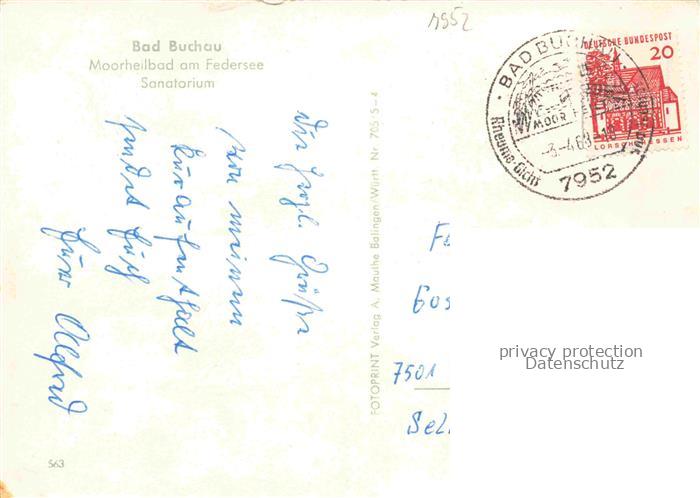 1952
Bad Buchau
Moorheilbad am Federsee
Sanatorium
Die herzl. Grüße
von meinem
Kuraufenthalt
sendet Euch
Euer Alfred
563
FOTOPRINT Verlag A. Mauthe Balingen/Württ. Nr. 705
5-4
BAD BUCH
MOOR
Rheuma-Gicht
-3.-4.69-18
7952
DEUTSCHE BUNDESPOST
20
LORSCH HESSEN
Fa
7501
Sel
privacy protection
Datenschutz